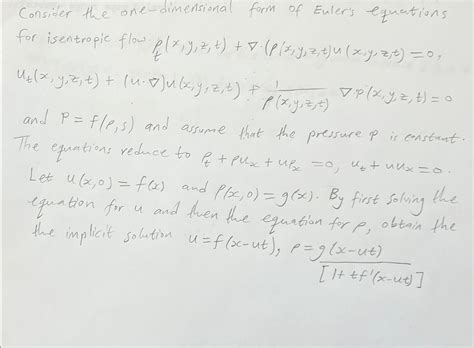 Consider the one-dimensional form of Euler's equations
for isentropic flow ρₜ(x,y,z,t) + ∇·(ρ(x,y,z,t)u(x,y,z,t)) = 0,
uₜ(x,y,z,t) + (u·∇)u(x,y,z,t) + 1/ρ(x,y,z,t) ∇p(x,y,z,t) = 0
and P = f(ρ,s) and assume that the pressure p is constant.
The equations reduce to ρₜ + ρuₓ + uρₓ = 0, uₜ + uuₓ = 0.
Let u(x,0) = f(x) and ρ(x,0) = g(x). By first solving the
equation for u and then the equation for ρ, obtain the
the implicit solution u = f(x-ut), ρ = g(x-ut)
[1 + tf'(x-ut)]